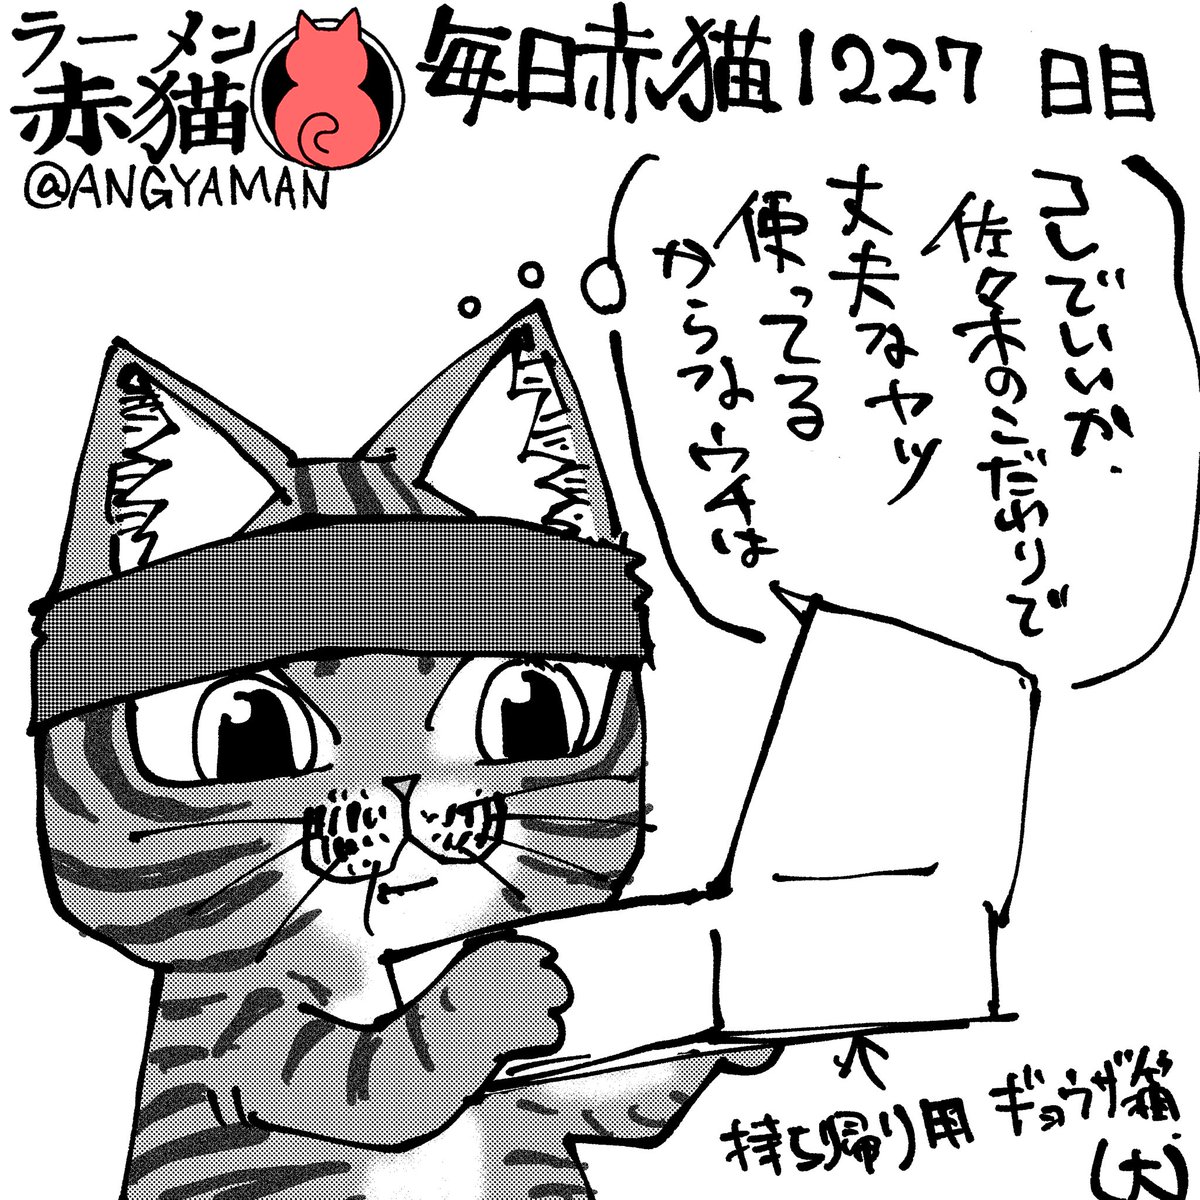 ラーメン
赤猫
@ANGYAMAN
毎日赤猫1227日目
コレでいいか、
佐々木のこだわりで
丈夫なヤツ
使ってる
からなウチは
持ち帰り用ギョウザ箱
(大)